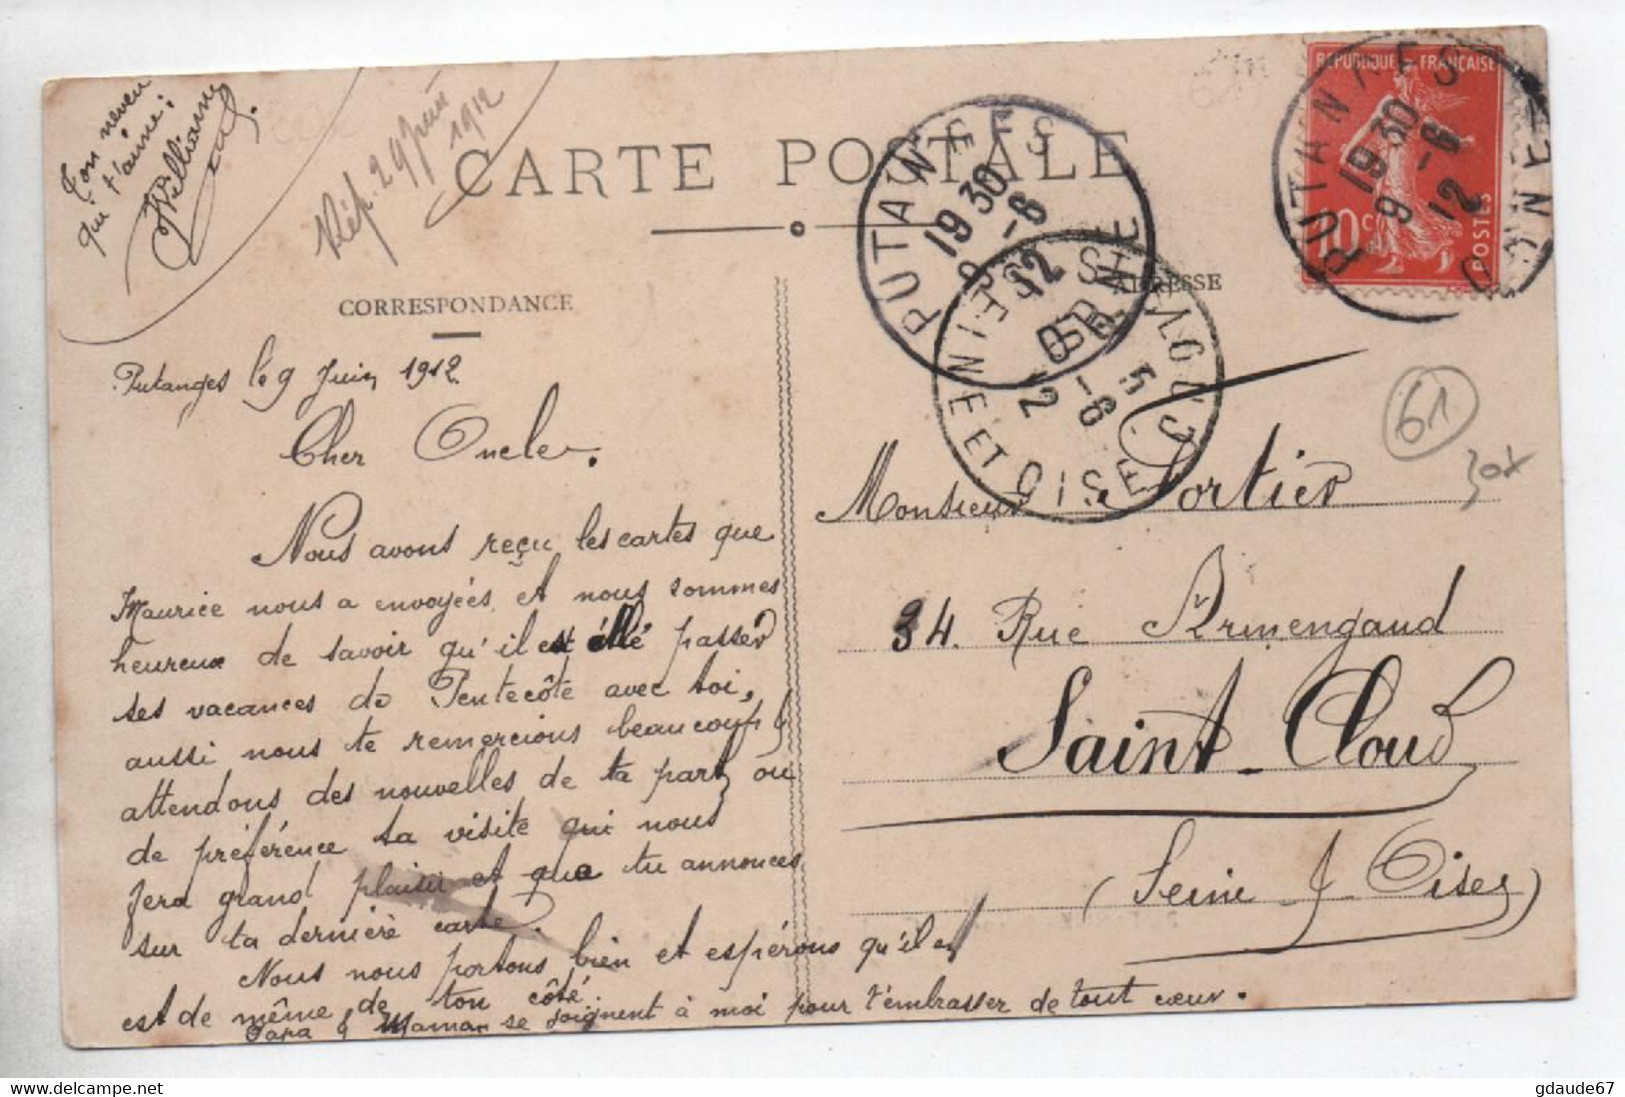 Ton neveu
qui t'aime :
William
Rép. 29 Juin
1912
CARTE POSTALE
CORRESPONDANCE
ADRESSE
REPUBLIQUE FRANÇAISE
10c
POSTES
PUTANGES
19 30
9 -6
12
ORNE
PUTANGES
19 30
9 -6
12
ORNE
SEINE ET OISE
-6
61
30x
Putanges le 9 Juin 1912.
Cher Oncle.
Nous avons reçu les cartes que
Maurice nous a envoyées, et nous sommes
heureux de savoir qu'il est allé passer
ses vacances de Pentecôte avec toi,
aussi nous te remercions beaucoup &
attendons des nouvelles de ta part ou
de préférence ta visite qui nous
fera grand plaisir et que tu annonces
sur ta dernière carte.
Nous nous portons bien et espérons qu'il en
est de même de ton côté.
Papa & Maman se joignent à moi pour t'embrasser de tout cœur.
Monsieur Sortier
34. Rue Armengaud
Saint-Cloud
(Seine & Oise)
gdaude67